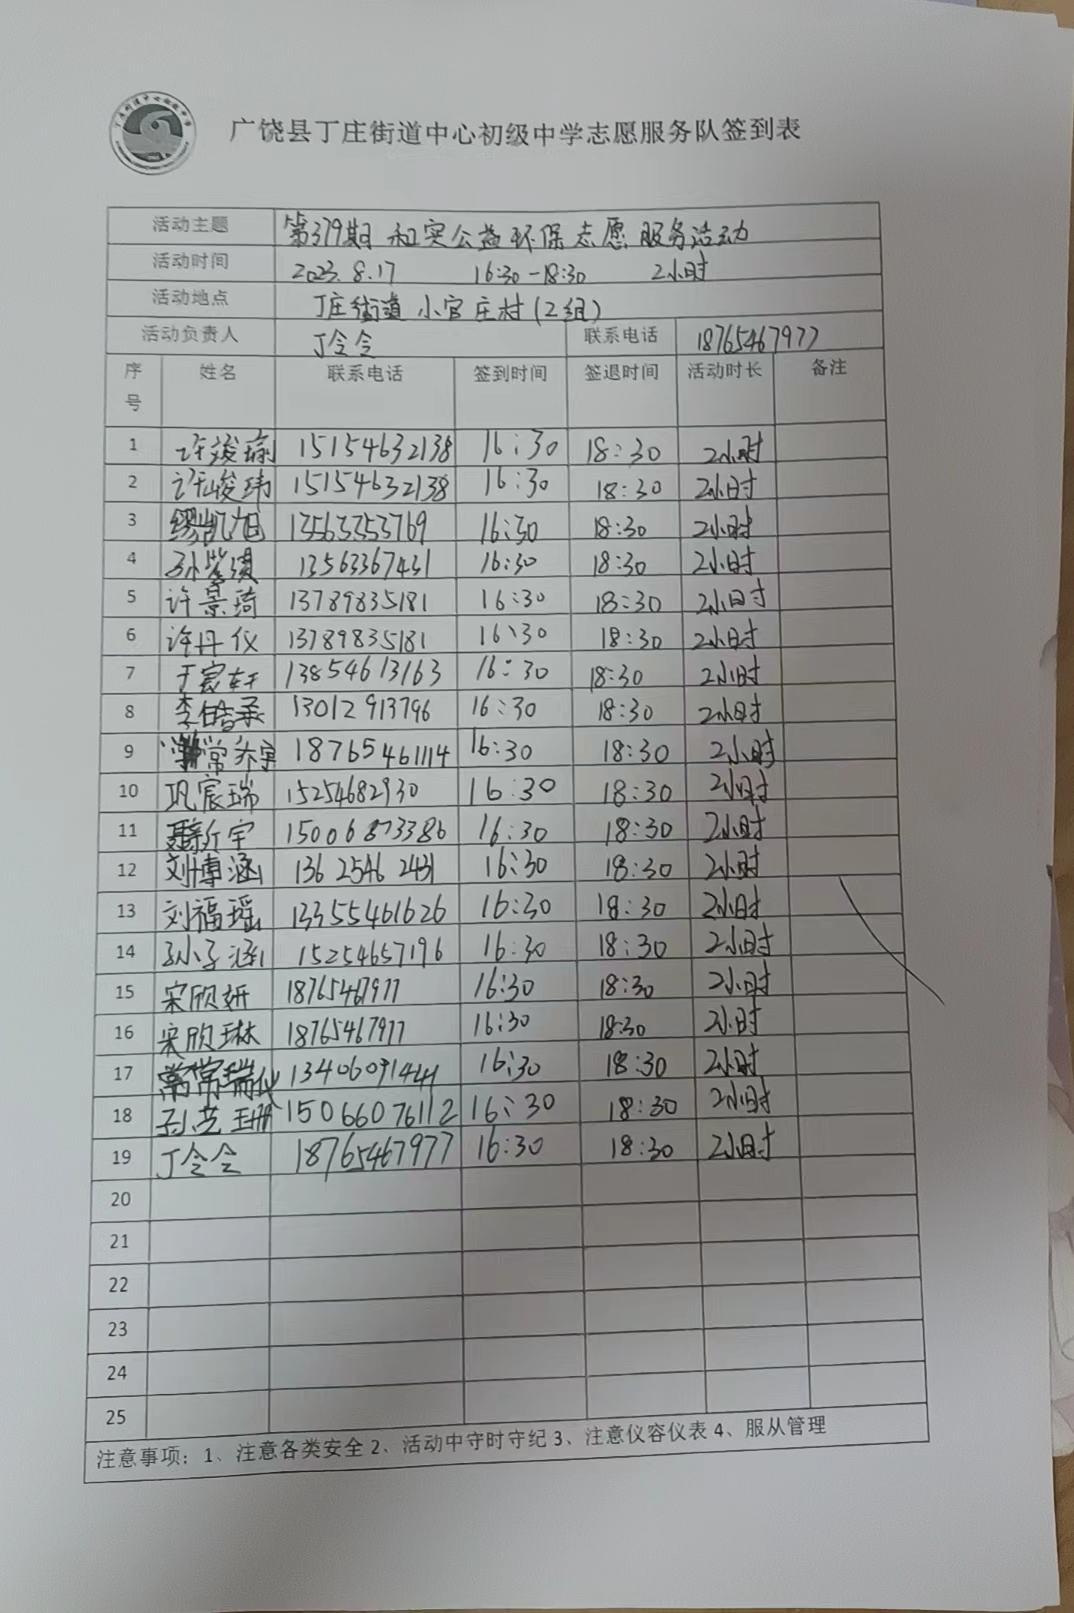 广饶县丁庄街道中心初级中学志愿服务队签到表
活动主题 第379期 和实公益环保志愿服务活动
活动时间 2023.8.17 16:30-18:30 2小时
活动地点 丁庄街道小官庄村(2组)
活动负责人 丁令令 联系电话 18765467977
序号 姓名 联系电话 签到时间 签退时间 活动时长 备注
1 许竣瑜 15154632138 16:30 18:30 2小时
2 许峻玮 15154632138 16:30 18:30 2小时
3 缪凯旭 13563353769 16:30 18:30 2小时
4 孙紫淇 13563367431 16:30 18:30 2小时
5 许景琦 13789835181 16:30 18:30 2小时
6 许丹仪 13789835181 16:30 18:30 2小时
7 于宸轩 13854613163 16:30 18:30 2小时
8 李皓承 13012913796 16:30 18:30 2小时
9 常乔宇 18765461114 16:30 18:30 2小时
10 巩宸瑞 15254682930 16:30 18:30 2小时
11 聂新宇 15006873386 16:30 18:30 2小时
12 刘博涵 13625462431 16:30 18:30 2小时
13 刘福瑶 13355461626 16:30 18:30 2小时
14 孙子涵 15254657196 16:30 18:30 2小时
15 宋欣妍 18765467977 16:30 18:30 2小时
16 宋欣琳 18765467977 16:30 18:30 2小时
17 常瑞仪 13406091441 16:30 18:30 2小时
18 孙芝珊 15066076112 16:30 18:30 2小时
19 丁令令 18765467977 16:30 18:30 2小时
20
21
22
23
24
25
注意事项：1、注意各类安全 2、活动中守时守纪 3、注意仪容仪表 4、服从管理